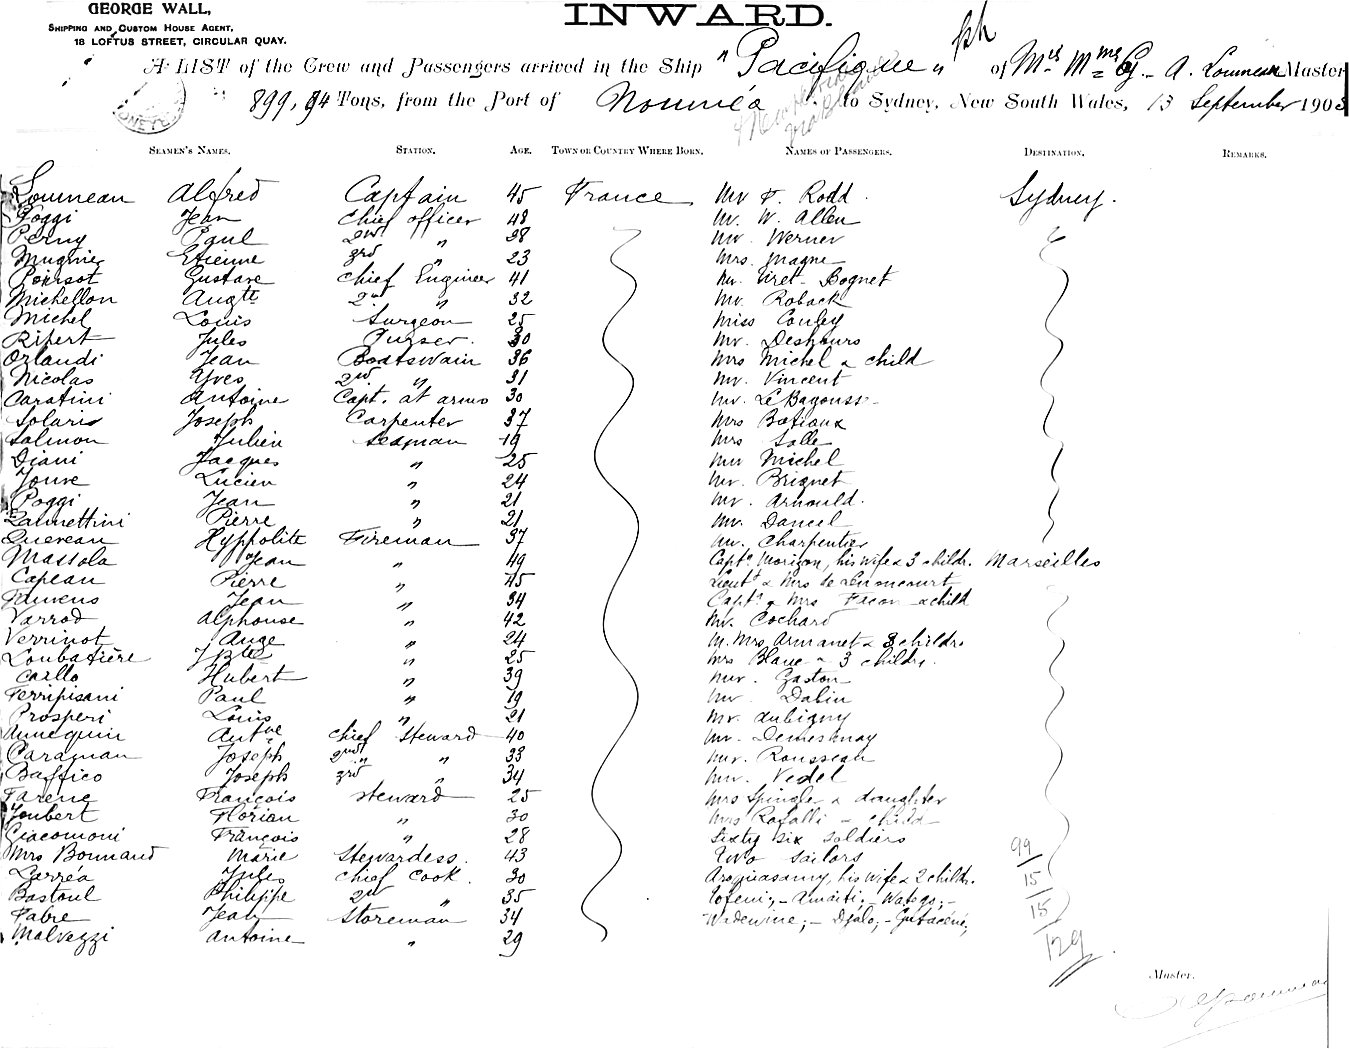 GEORGE WALL,
SHIPPING AND CUSTOM HOUSE AGENT,
18 LOFTUS STREET, CIRCULAR QUAY.
INWARD.
A LIST of the Crew and Passengers arrived in the Ship "Pacifique" of A. Louneau Master
899,94 Tons, from the Port of Nouméa to Sydney, New South Wales, 13 September 1903
SEAMEN'S NAMES. STATION. AGE. TOWN OR COUNTRY WHERE BORN. NAMES OF PASSENGERS. DESTINATION. REMARKS.
Louneau Alfred Captain 45 France Mr F. Rodd Sydney.
Poggi Jean Chief officer 48 Mr. W. Allen
Perny Paul 2nd " 28 Mr. Werner
Mugnier Etienne 3rd " 23 Mrs. Magne
Poirsot Gustave Chief Engineer 41 Mr. Viret-Bognet
Michellon Augte 2nd " 32 Mr. Roback
Michel Louis Surgeon 25 Miss Couley
Ripert Jules Purser. 30 Mr. Deshours
Orlandi Jean Boatswain 36 Mrs Michel & child
Nicolas Yves 2nd " 31 Mr. Vincent
Caratini Antoine Capt. at arms 30 Mr. Le Bagousse
Solaris Joseph Carpenter 37 Mrs
Salmon Julien Seaman 19 Mrs Salle
Diani Jacques " 25 Mr Michel
Jouve Lucien " 24 Mr. Briquet
Poggi Jean " 21 Mr. Arnould.
Zannettini Pierre " 21 Mr. Dancel
Quereau Hyppolite Fireman 37 Mr. Charpentier
Massola Jean " 49 Capt. Morizon, his wife & 3 childr. Marseilles
Capeau Pierre " 45 Lieut. & Mrs de Lenoncourt
Jean " 34 Capt. & Mrs Facon & child
Varrod Alphouse " 42 Mr. Cochard
Verrinot Ange " 24 M. Mrs Armanet & 3 childr.
Loubatière JBte " 25 Mrs Blanc & 3 childr.
Caillo Hubert " 39 Mr. Gaston
Ferripisani Paul " 19 Mr. Dabin
Prosperi Louis " 21 Mr. Aubigny
Annequin Antne Chief Steward 40 Mr. Demesnay
Caraman Joseph 2nd " " 33 Mr. Rousseau
Baffico Joseph 3rd " 34 Mr. Vedel
Farenc François Steward 25 Mrs Spingle & daughter
Joubert Florian " 30 Mrs Rafalli & child
Giacomoni François " 28 Sixty six soldiers
Mrs Bonnaud Marie Stewardess. 43 Two sailors 99
Larréa Jules Chief Cook. 30 his wife & 2 childr. 15
Bastoul Philippe 2nd " 35 Tofeni; - Amaiti; - Watego; - 15
Fabre Jean Storeman 34 Wadewine; - Djalo; - 129
Malvezzi Antoine " 29
Master.